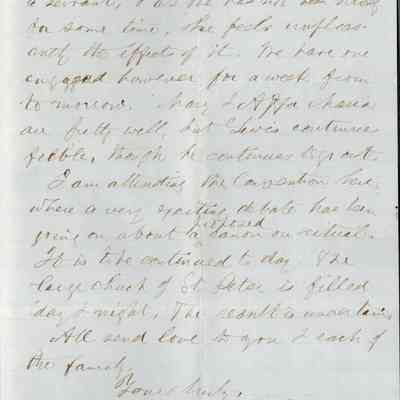 a servant, & as she has not been strong
for some time, she feels unpleas-
antly the effects of it. We have one
engaged however for a week from
to morrow. Mary &
are pretty well, but Lewis continues
feeble, though he continues to go out.
I am attending the Convention here,
where a very exciting debate has been
going on about a proposed canon on ritual.
It is to be continued to day. The
large church of St Peter is filled
day & night. The result is uncertain.
All send love to you & each of
the family.
Yours truly,